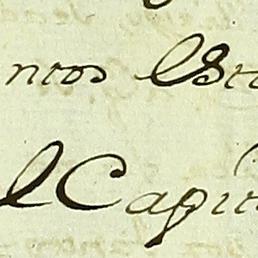 ntos Est
el Capit